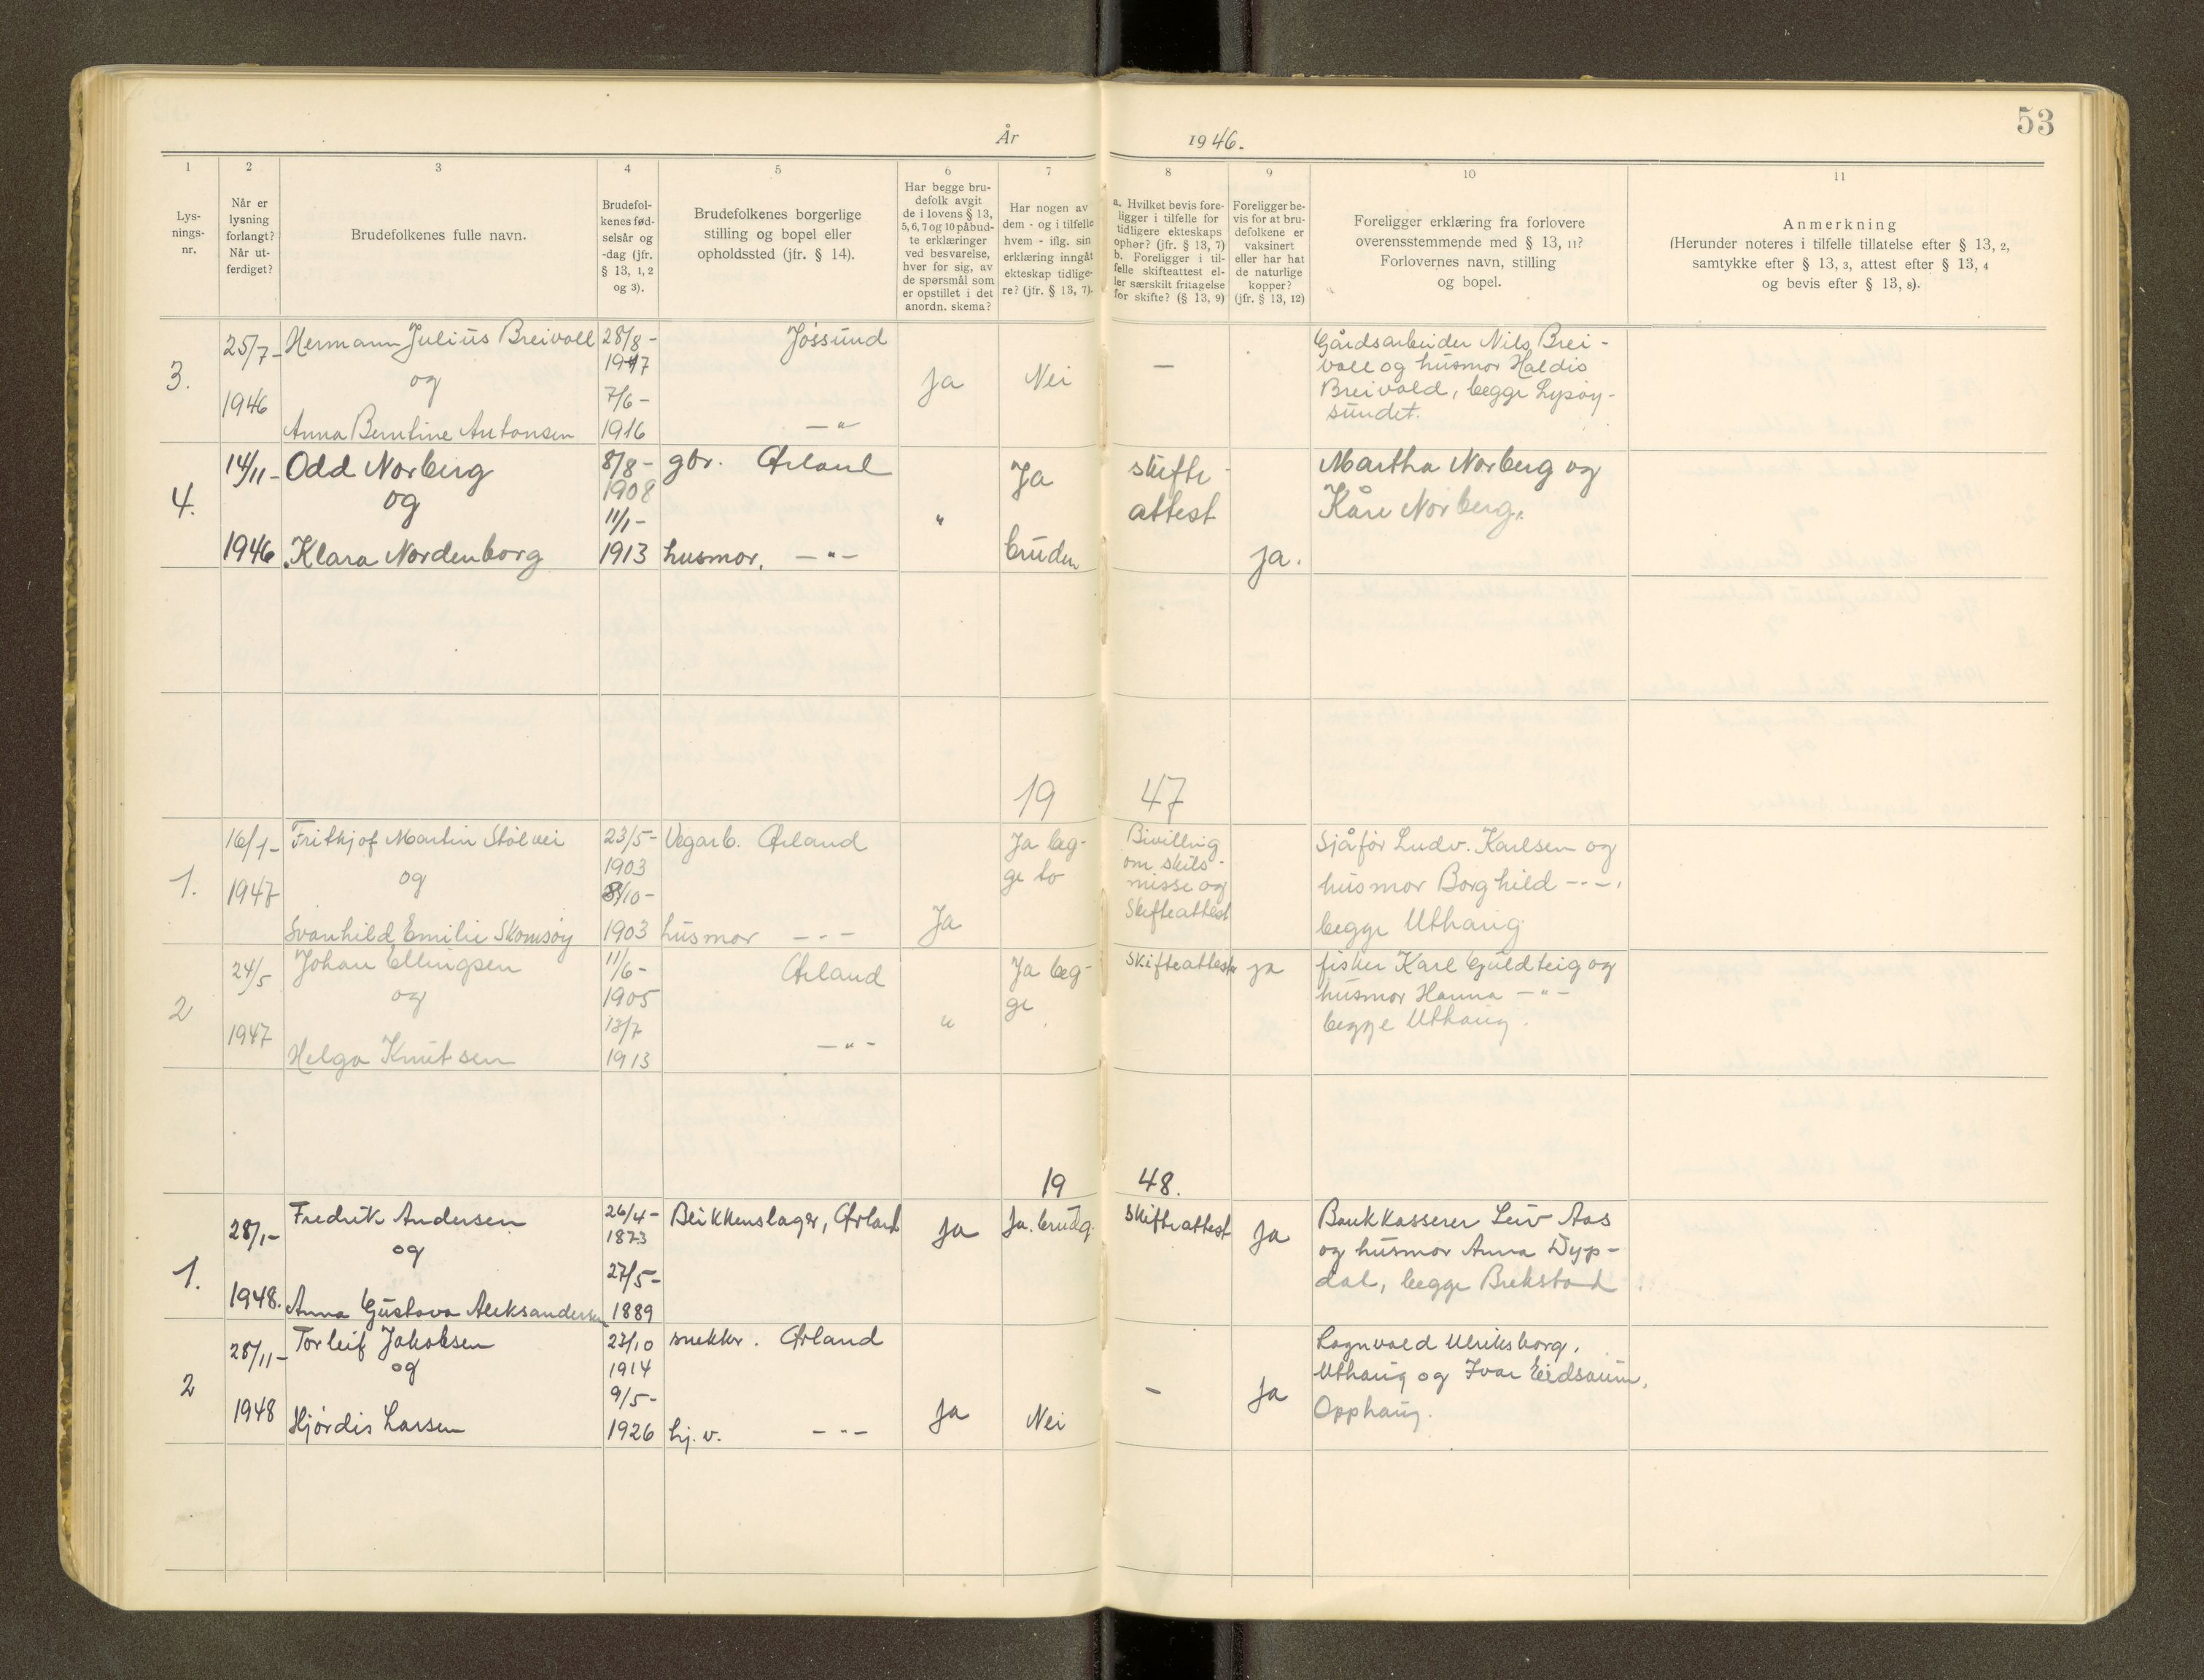 53
År 1946.
1 2 3 4 5 6 7 8 9 10 11
Lys-
nings-
nr.
Når er
lysning
forlangt?
Når ut-
ferdiget?
Brudefolkenes fulle navn.
Brudefol-
kenes fød-
selsår og
-dag (jfr.
§ 13, 1, 2
og 3).
Brudefolkenes borgerlige
stilling og bopel eller
opholdssted (jfr. § 14).
Har begge bru-
defolk avgit
de i lovens § 13,
5, 6, 7 og 10 påbud-
te erklæringer
ved besvarelse,
hver for sig, av
de spørsmål som
er opstillet i det
anordn. skema?
Har nogen av
dem - og i tilfelle
hvem - iflg. sin
erklæring inngått
ekteskap tidlige-
re? (jfr. § 13, 7).
a. Hvilket bevis fore-
ligger i tilfelle for
tidligere ekteskaps
ophør? (jfr. § 13, 7)
b. Foreligger i til-
felle skifteattest el-
ler særskilt fritagelse
for skifte? (§ 13, 9)
Foreligger be-
vis for at bru-
defolkene er
vaksinert
eller har hat
de naturlige
kopper?
(jfr. § 13, 12)
Foreligger erklæring fra forlovere
overensstemmende med § 13, 11?
Forlovernes navn, stilling
og bopel.
Anmerkning
(Herunder noteres i tilfelle tillatelse efter § 13, 2,
samtykke efter § 13, 3, attest efter § 13, 4
og bevis efter § 13, 8).
3.
25/7-
1946
Hermann Julius Breivoll
og
Anna Berntine Antonsen
28/8-
1917
7/6-
1916
Jøssund
— " 
Ja
Nei
—
Gårdsarbeider Nils Brei-
voll og husmor Haldis
Breivold, begge Lysøy-
sundet.
4.
14/11-
1946
Odd Norberg
og
Klara Nordenborg
8/8-
1908
11/1-
1913
gbr. Ørland
husmor. — " —
"
Ja
bruden
skifte-
attest
ja.
Martha Norberg og
Kåre Norberg.
19 47
1.
16/1-
1947
Frithjof Martin Stølvei
og
Svanhild Emilie Skomsøy
23/5-
1903
8/10-
1903
Vegarb. Ørland
husmor — " —
Ja
Ja beg-
ge to
Bivilling
om skils-
misse og
Skifteattest
Sjåfør Ludv. Karlsen og
husmor Borghild — " —,
begge Uthaug
2
24/5
1947
Johan Ellingsen
og
Helga Knutsen
11/6-
1905
13/7
1913
Ørland
— " —
"
Ja beg-
ge
Skifteattest
ja
fisker Karl Guldteig og
husmor Hanna — " —
begge Uthaug.
19 48.
1.
28/1-
1948.
Fredrik Andersen
og
Anna Gustava Aleksandersen
26/4-
1873
27/5-
1889
Blikkenslager, Ørland
Ja
Ja. brudg.
Skifteattest
Ja
Bankkasserer Leiv Aas
og husmor Anna Dyp-
dal, begge Brekstad
2
25/11-
1948
Torleif Jakobsen
og
Hjørdis Larsen
27/10
1914
9/5-
1926
snekker. Ørland
hj. v. — " —
Ja
Nei
—
Ja
Ragnvald Ulriksborg,
Uthaug og Ivar Eidsaune,
Opphaug.